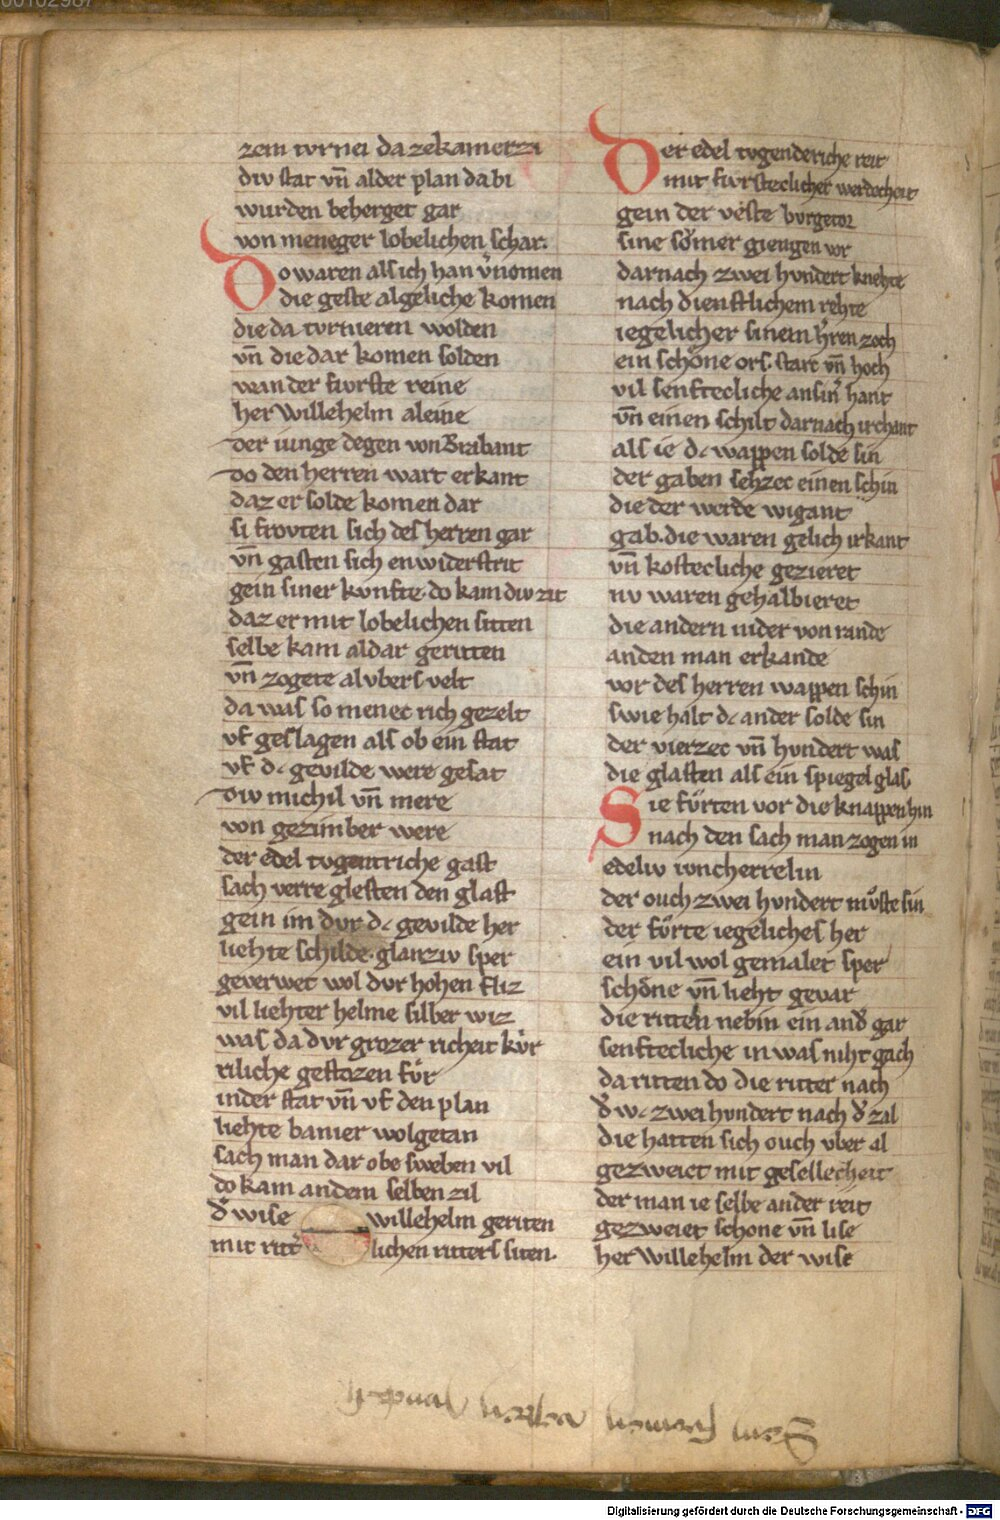 zem tvrnei da zekamerzi
div stat vn̄ alder plan da bi
wurden beherget gar
von meneger lobelichen schar.
Do waren als ich han v̓nomen
die geste algeliche komen
die da tvrnieren wolden
vn̄ die dar komen solden
wan der fivrste reine
her Willehelm aleine
Der iunge degen von Brabant
Do den herren wart erkant
daz er solde komen dar
si frovten sich des herren gar
vn̄ gasten sich enwiderstrit
gein siner kvnfte. do kam div zit
daz er mit lobelichen sitten
selbe kam aldar geritten
vn̄ zogete al vbers velt
da was so menec rich gezelt
vf geslagen als ob ein stat
vf d᷑ gevilde were gesat
Div michil vn̄ mere
von gezimber were
der edel tvgentriche gast
sach verre glesten den glast
gein im dvr d᷑ gevilde her
liehte schilde. glanziv sper
geverwet wol dvr hohen fliz
vil liehter helme silber wiz
was da dvr grozer richeit kv̊r
riliche gestozen fv̊r
inder stat vn̄ vf den plan
liehte banier wolgetan
sach man dar obe sweben vil
do kam andem selben zil
d̓ wise willehelm geriten
mit rit̓lichen ritters siten.
Der edel tvgenderiche reit
mit fivrsteclicher werdecheit
gein der veste burgetor
sine sömer giengen vor
darnach zwei hvndert knehte
nach dienstlichem rehte
iegelicher sinem h̓ren zoch
ein schöne ors. starc vn̄ hoch
vil senftecliche an sin̓ hant
vn̄ einen schilt darnach irchant
als ie d᷑ wappen solde sin
der gaben sehzec einen schin
die der werde wigant
gab. die waren gelich irkant
vn̄ kostecliche gezieret
nv waren gehalbieret
die andern nider von rande
anden man erkande
vor des herren wappen schin
swie halt d᷑ ander solde sin
der vierzec vn̄ hvndert was
die glasten als ein spiegel glas
Sie fv̊rten vor die knappen hin
nach den sach man zogen in
edeliv ivncherrelin
der ouch zwei hvndert mv̊ste sin
der fv̊rte iegeliches her
ein vil wol gemalet sper
schöne vn̄ lieht gevar
die ritten nebin ein and̓ gar
senftecliche in was niht gach
da ritten do die ritter nach
d̓ w᷑ zwei hvndert nach d̓ zal
die hatten sich ouch vber al
gezweiet mit gesellecheit
der man ie selbe ander reit
gezweiet schone vn̄ lise
her Willehelm der wise
Digitalisierung gefördert durch die Deutsche Forschungsgemeinschaft - DFG